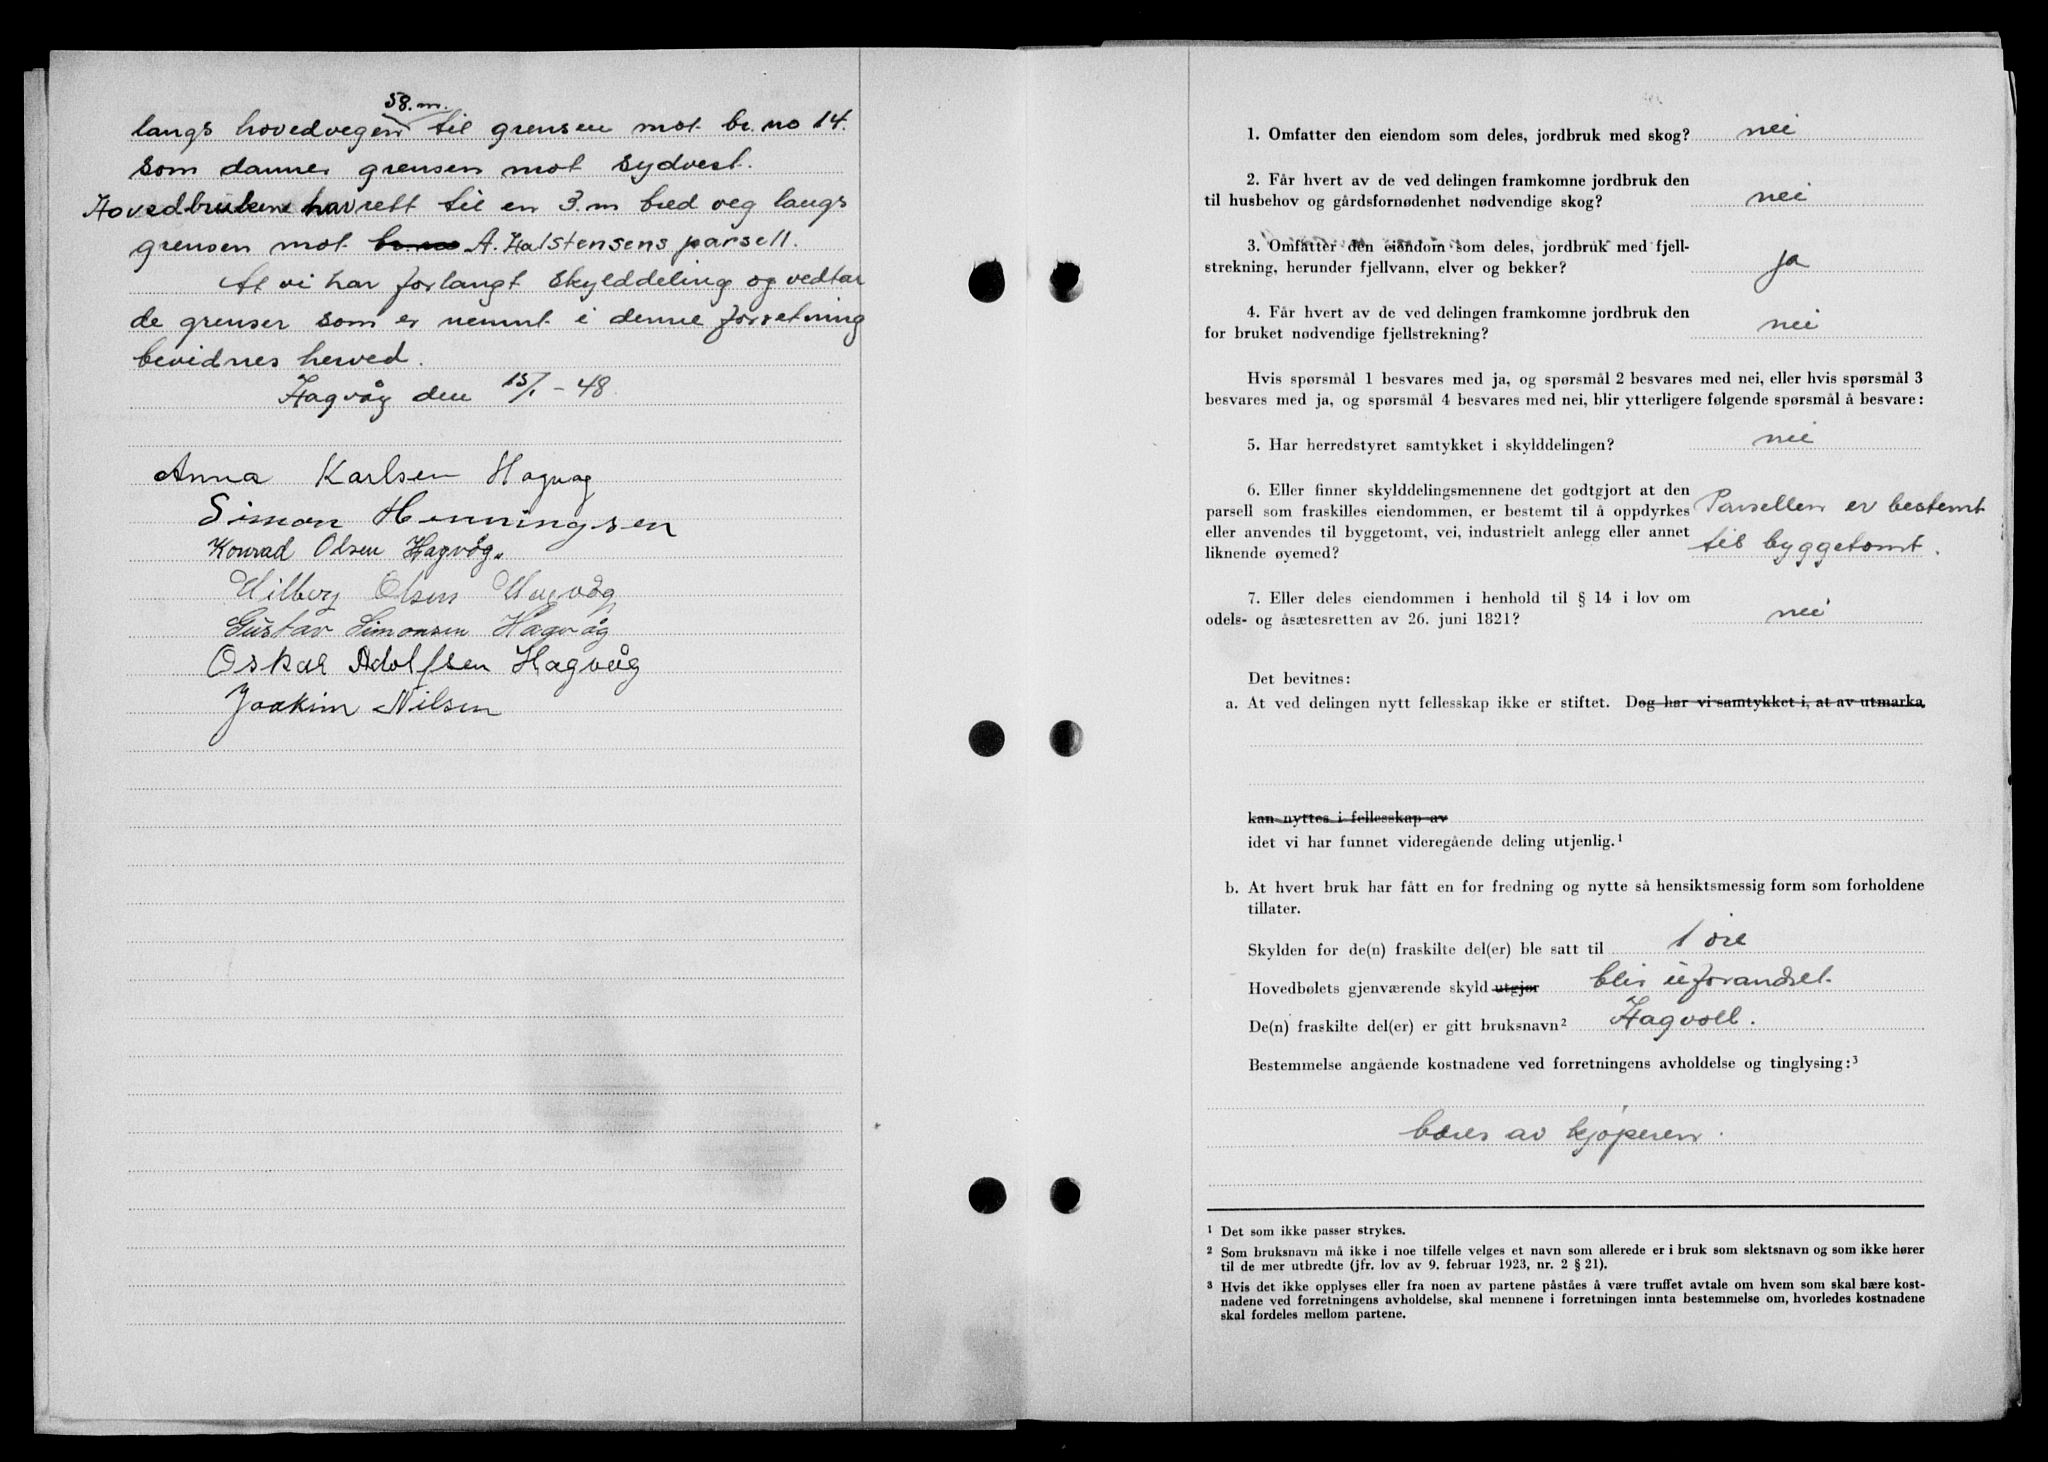 58. m.
langs hovedvegen til grensen mot br. no 14.
som danner grensen mot sydvest.
Hovedbruken har rett til en 3. m bred veg langs
grensen mot br. no A. Halstensens parsell.
At vi har forlangt skylddeling og vedtar
de grenser som er nevnt i denne forretning
bevidnes herved.
Hagvåg den 15/1 - 48.
Anna Karlsen Hagvag
Simon Henningsen
Konrad Olsen Hagvåg.
Olsen Hagvåg
Gustav Simonsen Hagvåg
Oskar Adolfsen Hagvåg
Joakim Nilsen
1. Omfatter den eiendom som deles, jordbruk med skog? nei
2. Får hvert av de ved delingen framkomne jordbruk den
til husbehov og gårdsfornødenhet nødvendige skog? nei
3. Omfatter den eiendom som deles, jordbruk med fjell-
strekning, herunder fjellvann, elver og bekker? ja
4. Får hvert av de ved delingen framkomne jordbruk den
for bruket nødvendige fjellstrekning? nei
Hvis spørsmål 1 besvares med ja, og spørsmål 2 besvares med nei, eller hvis spørsmål 3
besvares med ja, og spørsmål 4 besvares med nei, blir ytterligere følgende spørsmål å besvare:
5. Har herredstyret samtykket i skylddelingen? nei
6. Eller finner skylddelingsmennene det godtgjort at den
parsell som fraskilles eiendommen, er bestemt til å oppdyrkes Parsellen er bestemt
eller anvendes til byggetomt, vei, industrielt anlegg eller annet
liknende øyemed? til byggetomt.
7. Eller deles eiendommen i henhold til § 14 i lov om
odels- og åsætesretten av 26. juni 1821? nei
Det bevitnes:
a. At ved delingen nytt fellesskap ikke er stiftet. Dog har vi samtykket i, at av utmarka
kan nyttes i fellesskap av
idet vi har funnet videregående deling utjenlig.¹
b. At hvert bruk har fått en for fredning og nytte så hensiktsmessig form som forholdene
tillater.
Skylden for de(n) fraskilte del(er) ble satt til 1 øre
Hovedbølets gjenværende skyld utgjør blir uforandret.
De(n) fraskilte del(er) er gitt bruksnavn² Hagvoll.
Bestemmelse angående kostnadene ved forretningens avholdelse og tinglysing:³
bæres av kjøperen.
¹ Det som ikke passer strykes.
² Som bruksnavn må ikke i noe tilfelle velges et navn som allerede er i bruk som slektsnavn og som ikke hører
til de mer utbredte (jfr. lov av 9. februar 1923, nr. 2 § 21).
³ Hvis det ikke opplyses eller fra noen av partene påståes å være truffet avtale om hvem som skal bære kost-
nadene ved forretningens avholdelse, skal mennene i forretningen innta bestemmelse om, hvorledes kostnadene
skal fordeles mellom partene.